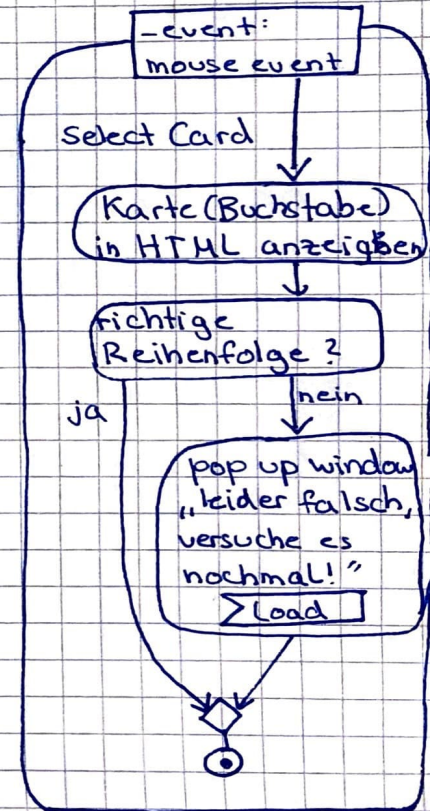 -event:
mouse event
Select Card
Karte (Buchstabe)
in HTML anzeigen
richtige
Reihenfolge ?
ja
nein
pop up window
„leider falsch,
versuche es
nochmal!”
Load